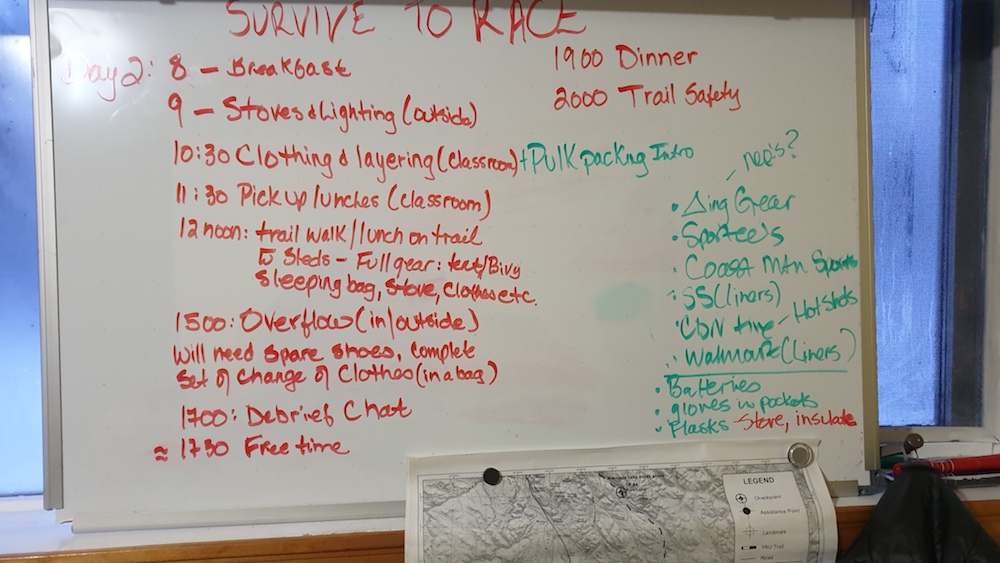 SURVIVE TO RACE
Day 2: 8 – Breakfast
9 – Stoves & Lighting (outside)
10:30 Clothing & layering (classroom) + Pulk packing Intro
11:30 Pick up lunches (classroom)
12 noon: trail walk/lunch on trail
Sleds – Full gear: tent/Bivy
Sleeping bag, Stove, Clothes etc.
1500: Overflow (in/outside)
Will need spare shoes, complete
Set of change of Clothes (in a bag)
1700: Debrief Chat
≈ 1730 Free time
1900 Dinner
2000 Trail Safety
nee's?
• Ding Gear
• Sportee's
• Coast Mtn Sports
• SS (liners)
• CDN tire – Hot Shots
• Walmart (Liners)
• Batteries
• gloves in pockets
• Flasks – Stove, insulate
LEGEND
Checkpoint
Assistance Point
Landmark
YAU Trail
Road